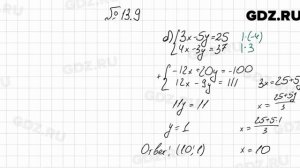 GDZ.RU
№13.9
б) { 3x-5y=25 |·(-4)
{ 4x-3y=37 |·3
+ { -12x+20y=-100
{ 12x-9y=111
11y=11
y=1
Ответ: (10;1)
3x=25+5y
x=25+5y/3
x=25+5·1/3
x=10